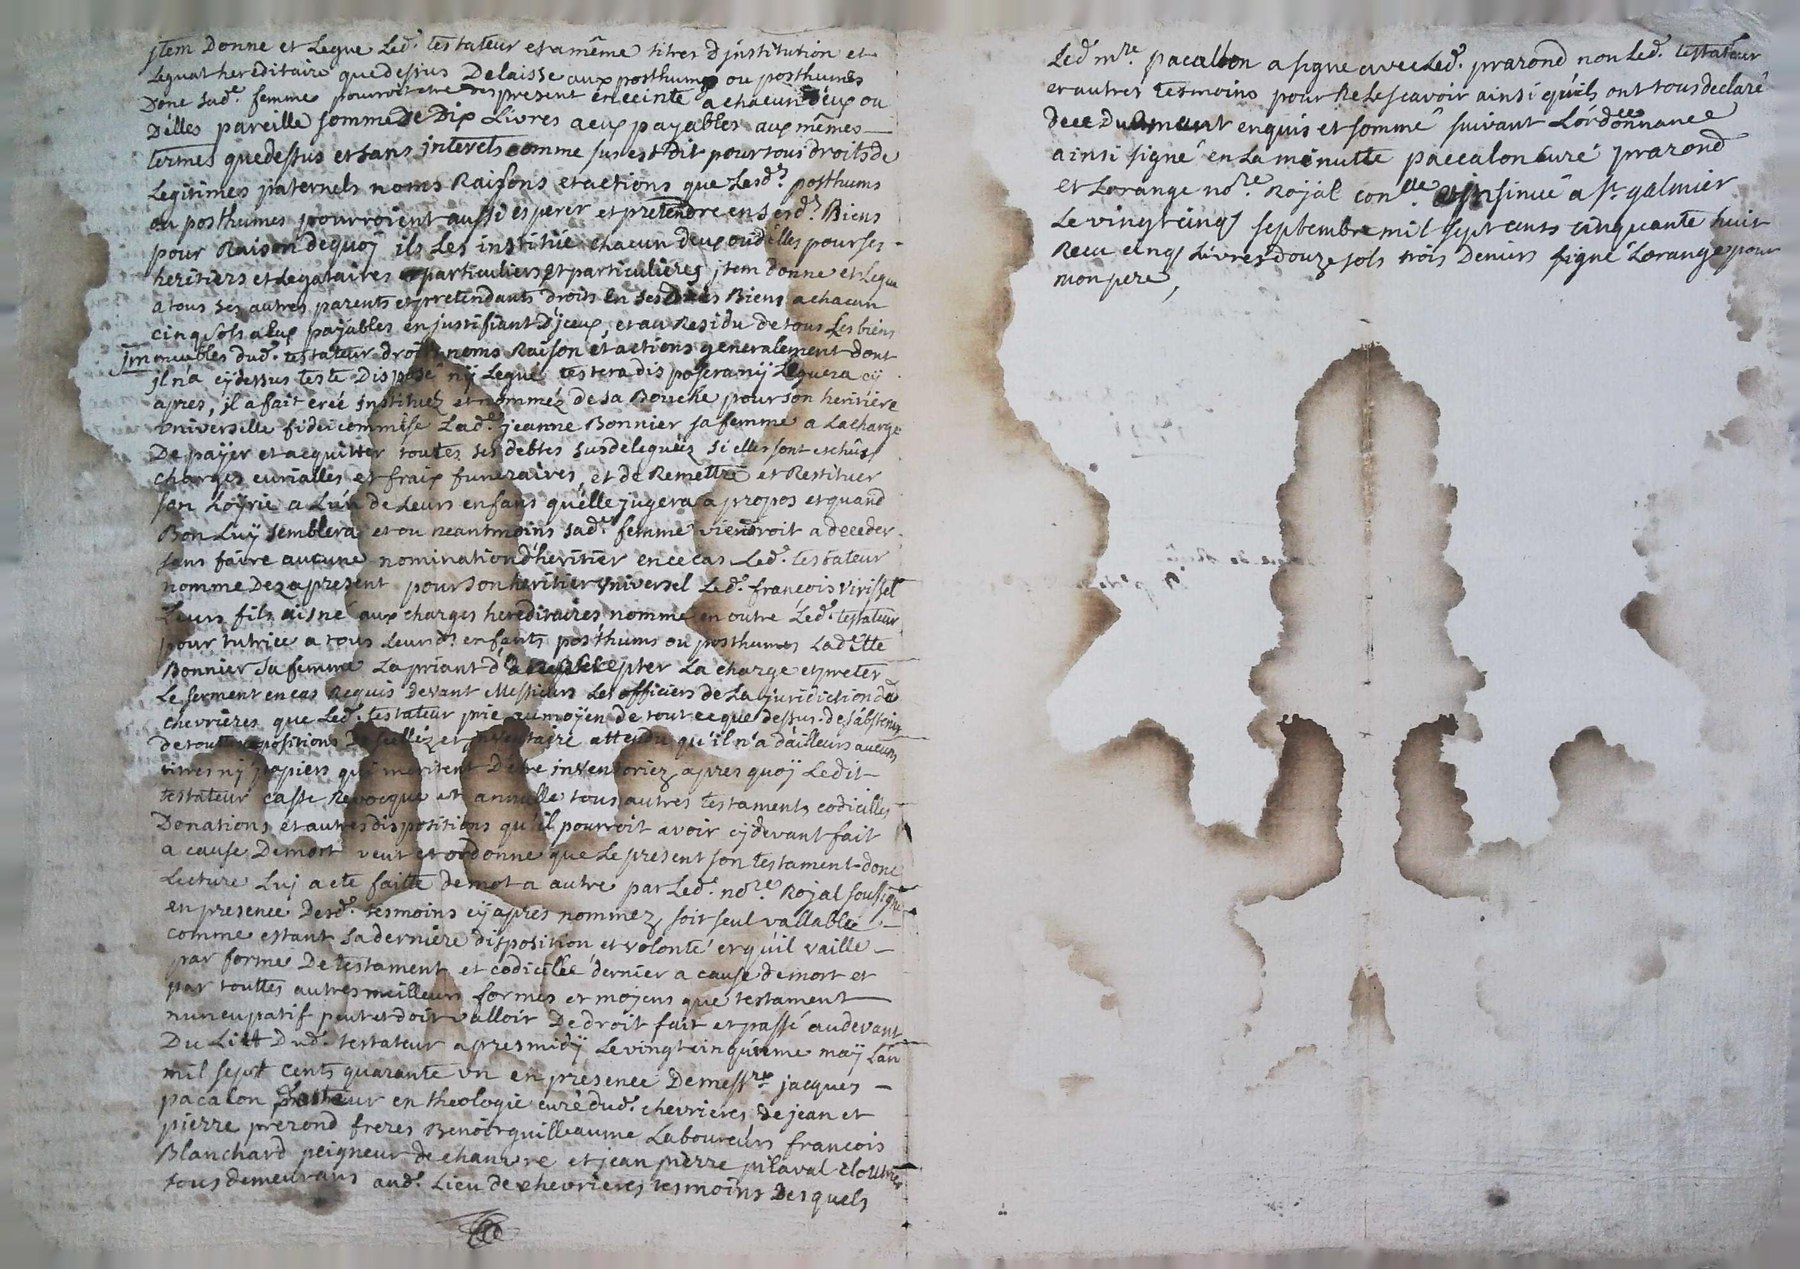 jtem Donne et Legue Led.t testateur et a même titres Djnstitution et
Legnat hereditaire que dessus Delaisse aux posthumes ou posthumes
Dont sad.e femme pourroit etre Des present enceinte a chacun d'eux ou
D'elles pareille somme De Dix Livres a eux payables aux mêmes
termes que dessus et sans interets comme sus est dit pour tous droits de
Legitimes paternels noms Raisons et actions que Lesd.s posthums
ou posthumes pourroient aussi esperer et pretendre en sesd.s Biens
pour Raison dequoÿ ils Les institüe chacun deux ou d'elles pour ses
heritiers et Legataires particuliers et particulieres jtem donne et Legue
a tous ses autres parents et pretendants droits en ses Biens a chacun
cinq sols a eux paÿables en justifiant D'jceux, et au Residu de tous Les biens
jmmeubles dud.t testateur droits noms Raison et actions generalement dont
jl n'a cÿ dessus teste Disposé nÿ Legué testera disposera nÿ Leguera cÿ
apres, jl a fait creé jnstituez et nommez de sa Bouche pour son heritiere
vniverselle fideicommise Lad.e jeanne Bonnier sa femme a La charge
De paÿer et acquitter toutes ses debtes si elles sont eschûes
charges curialles et fraix funeraires, et de Remettre et Restituer
son hoÿrie a L'un de Leurs enfans qu'elle jugera a propos et quand
Bon Luÿ semblera et ou neantmoins sad.e femme viendroit a deceder
sans faire aucune nomination d'heritier en ce cas Led.t testateur
nomme Des a present pour son heritier vniversel Led.t françois Virissel
Leurs fils aisné aux charges hereditaires nomme en outre Led.t testateur
pour tutrice a tous Leurd.s enfants posthums ou posthumes Lad.e tte
Bonnier sa femme La priant d'accepter La charge et preter
Le serment en cas Requis devant Messieurs Les officiers de La juridiction de
chevrieres que Led.t testateur prie au moÿen de tout ce que dessus de s'abstenir
de toutte apositions De scellez et jnventaire attendu qu'il n'a d'ailleurs aucuns
titres nÿ papiers qui meritent D'etre inventoriez apres quoÿ Ledit
testateur casse Revocque et annulle tous autres testaments codicilles
Donations et autres dispositions qu'il pourroit avoir cÿ devant fait
a cause De mort veut et ordonne que Le present son testament donc
Lecture Luj a ete faitte de mot a autre par Led.t no.re Roÿal soussigné
en presence Desd.s tesmoins cÿ apres nommez soit seul vallable
comme estant sa derniere disposition et volonté et qu'il vaille
par forme De testament et codicille dernier a cause de mort et
par touttes autres meilleurs formes et moÿens que testament
nuncupatif peut et doit valloir De droit fait et passé au devant
Du Litt Dud.t testateur apres midÿ Le vingt cinquieme maÿ L'an
mil sept cents quarante vn en presence De mess.re jacques
pacalon Docteur en theologie curé dud.t chevrieres de jean et
pierre prerond freres Benoit guilleaume Laboureurs francois
Blanchard peigneur de chanvre et jean pierre pilaval cloutier
tous demeurans aud.t Lieu de chevrieres tesmoins Desquels
Led m.re pacalbon a signé avec Led.t prarond non Led.t testateur
et autres tesmoins pour ne Le scavoir ainsi qu'ils ont tous declaré
de ce Duement enquis et sommé suivant L'ordonnance
ainsi signé en La minutte paccalon curé prarond
et Lorange no.re Roÿal con.lle jnsinué a s.t galmier
Le vingt cinq septembre mil sept cents cinquante huit
Recu cinq Livres douze sols trois Deniers signé Lorange pour
mon pere,